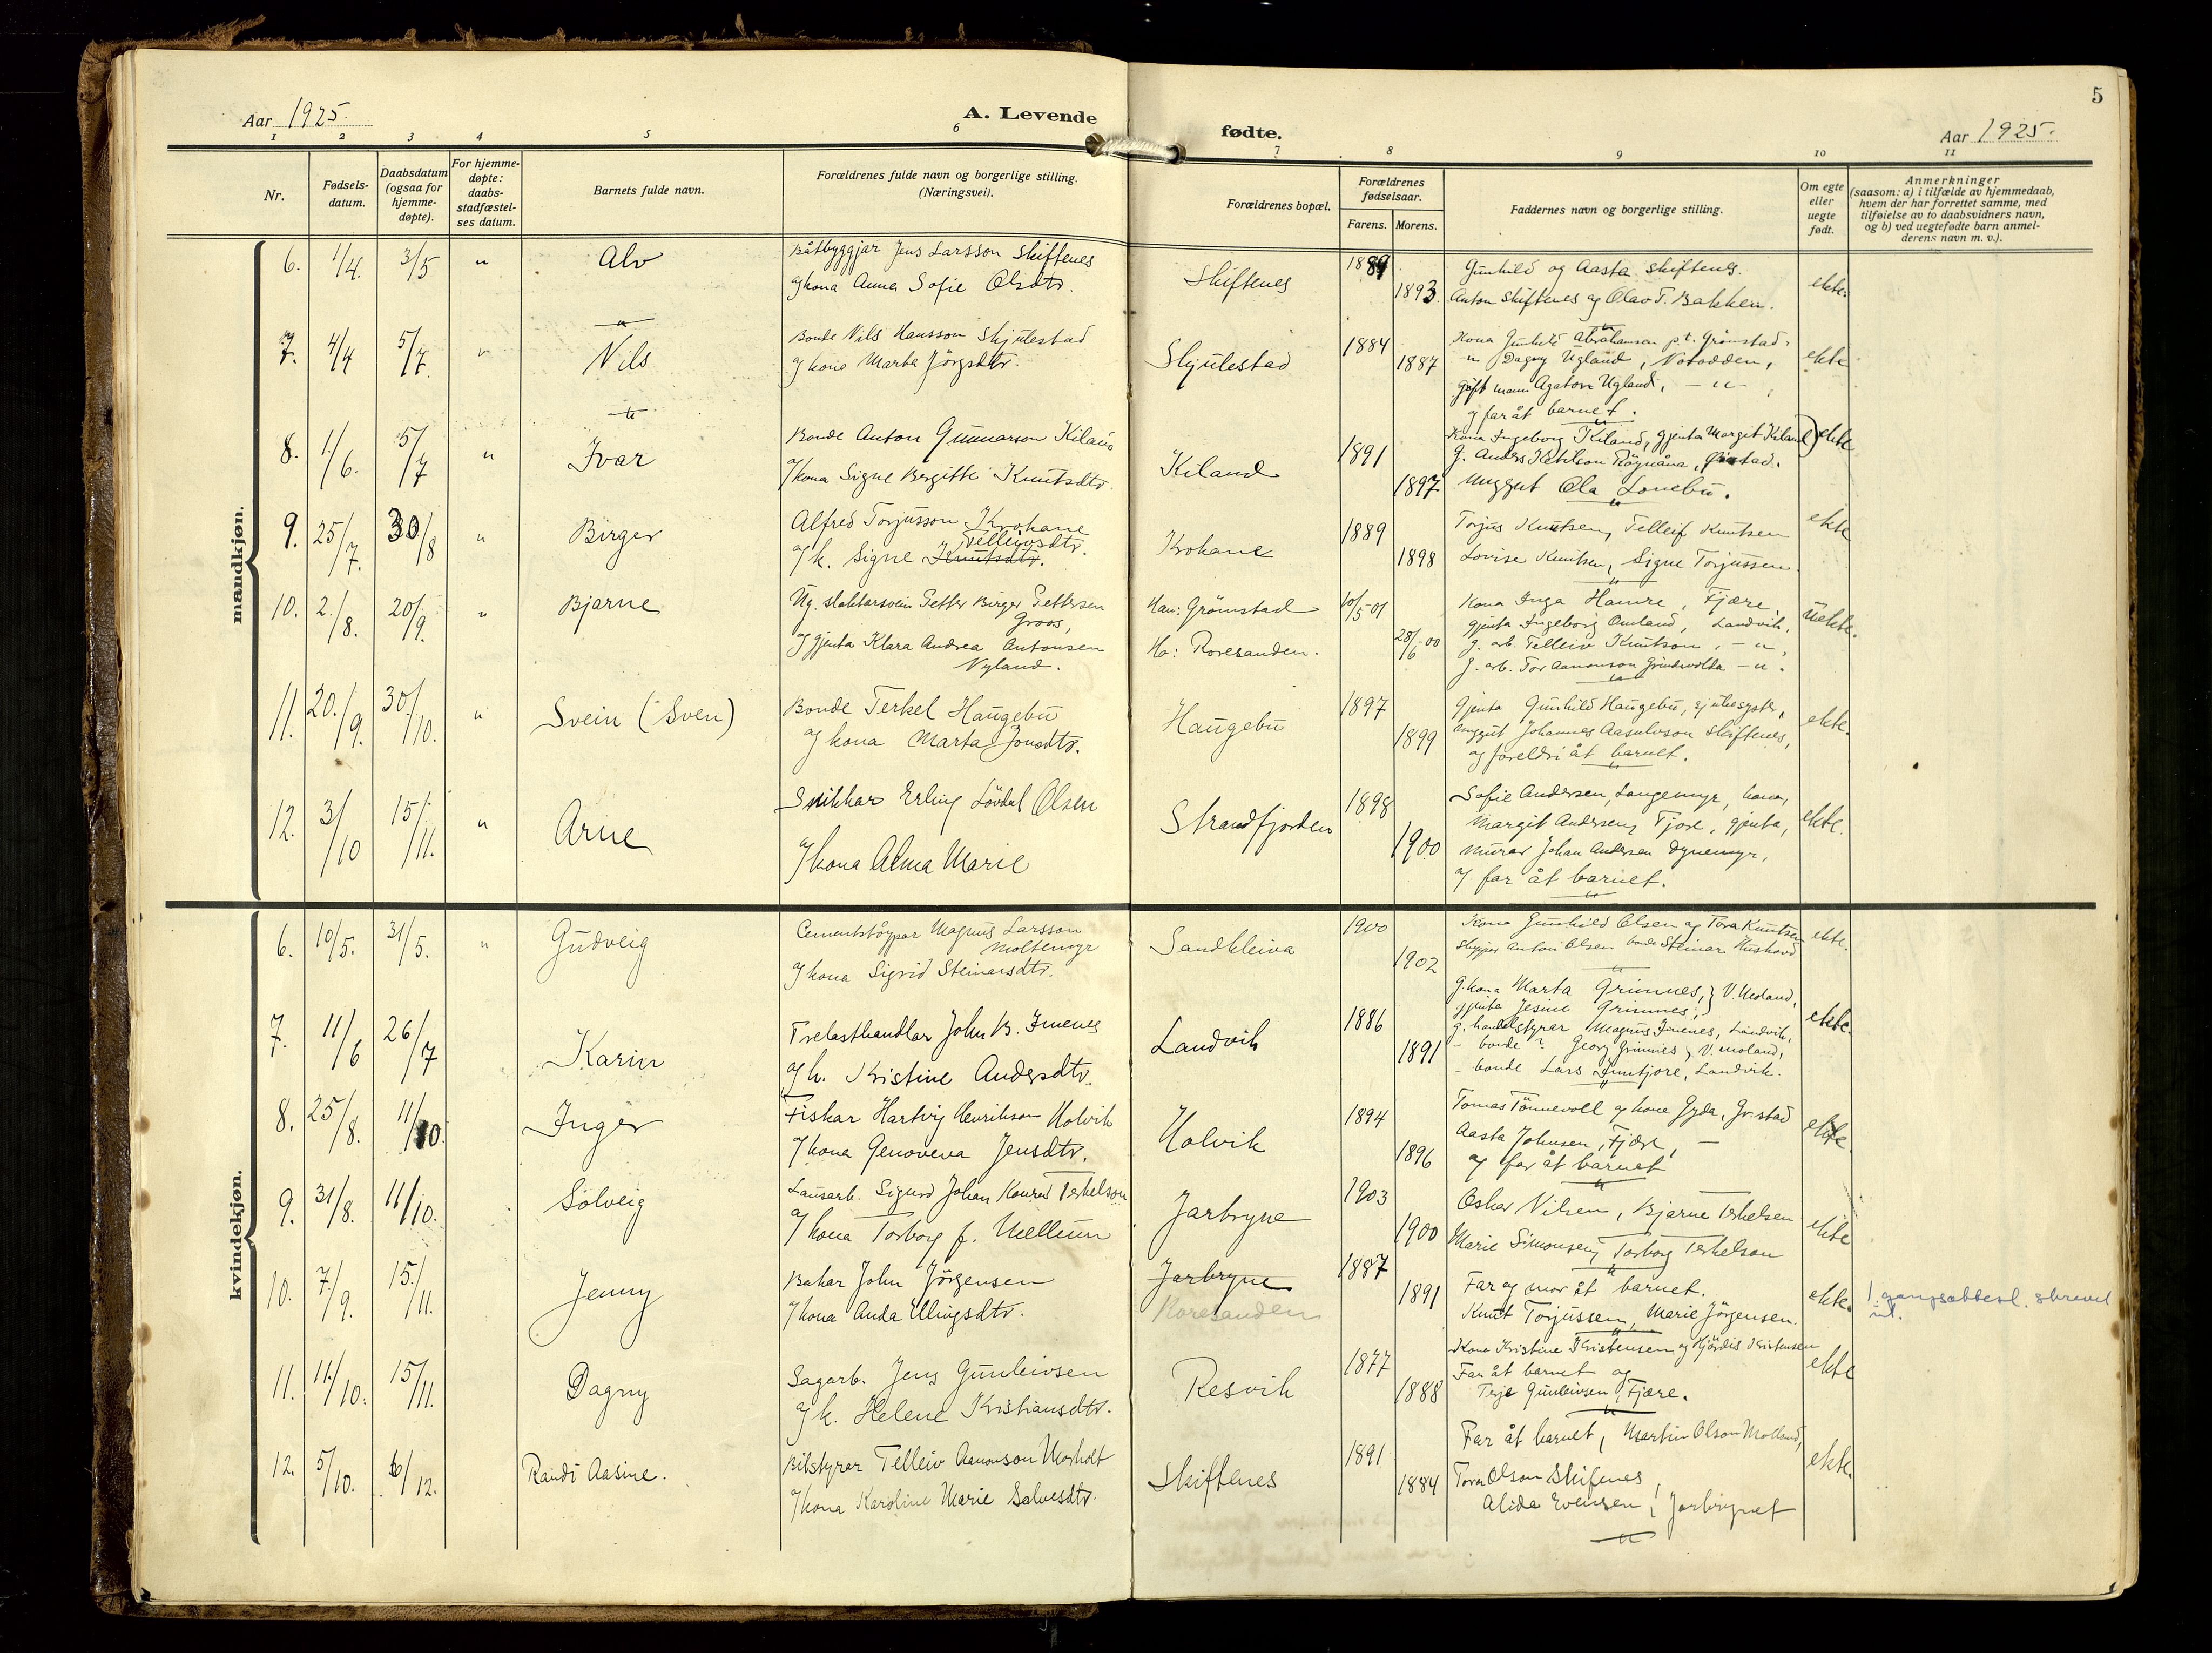 5
Aar 1925.
A. Levende
fødte.
Aar 1925.
1 2 3 4 5 6 7 8 9 10 11
Nr.
Fødsels-
datum.
Daabsdatum
(ogsaa for
hjemme-
døpte).
For hjemme-
døpte:
daabs-
stadfæstel-
ses datum.
Barnets fulde navn.
Forældrenes fulde navn og borgerlige stilling.
(Næringsvei).
Forældrenes bopæl.
Forældrenes
fødselsaar.
Farens. Morens.
Faddernes navn og borgerlige stilling.
Om egte
eller
uegte
født.
Anmerkninger
(saasom: a) i tilfælde av hjemmedaab,
hvem der har forrettet samme, med
tilføielse av to daabsvidners navn,
og b) ved uegtefødte barn anmel-
derens navn m. v.).
mandkjøn.
6. 1/4. 3/5 " Alv
Båtbyggjar Jens Larsson Skiftenes
og kona Anna Sofie Olsdtr.
Skiftenes 1889 1893.
Gunhild og Aasta Skiftenes.
Anton Skiftenes og Olav T. Bakken.
ekte
7. 4/4 5/7. " Nils
Bonde Nils Hansson Skjulestad
og kona Marta Jörgsdtr.
Skjulestad 1884 1887
Kona Gunhild Abrahamsen p.t. Grimstad.
" Dagny Ugland, Notodden,
gift mann Agaton Ugland, - " -
og far åt barnet.
ekte
8. 1/6. 5/7 " Ivar
Bonde Anton Gunnarson Kiland
og kona Signe Bergitte Knutsdtr.
Kiland 1891 1897
Kona Ingeborg Kiland, gjenta Margit Kiland
G. Anders Ketilson Rögnåna,
Unggut Ola Lonebu.
ekte
9. 25/7. 30/8 " Birger
Alfred Torjusson Krohane
Telleivsdtr.
og k. Signe Knutsdtr.
Krohane 1889 1898
Torjus Knutsen, Telleif Knutsen
Lovise Knutsen, Signe Torjussen.
ekte
10. 2./8. 20/9. " Bjarne
Ug. slaktarsvein Petter Birger Pettersen
Groos,
og gjenta Klara Andrea Antonsen
Nyland.
Han: Grömstad
Ho: Roresanden.
10/5-01 28/6-00
Kona Inga Hamre, Fjære,
gjenta Ingeborg Omland, Landvik,
g. arb. Telleiv Knutson, - " -,
g. arb. Tor Aanonson - " -.
uekte.
11. 20./9. 30./10. " Svein (Sven)
Bonde Terkel Haugebu
og kona Marta Jonsdtr.
Haugebu 1897 1899
Gjenta Gunhild Haugebu, sjukesyster,
unggut Johannes Aasulvson Skiftenes,
og foreldri åt barnet.
ekte.
12. 3/10 15/11. " Arne
Snikkar Erling Lövdal Olsen
og kona Alma Marie
Strandfjorden 1898 1900
Sofie Andersen, Langemyr, kona,
Margit Andersen, Fjore, gjenta,
murar Johan Andersen Dynemyr,
og far åt barnet.
ekte.
kvindekjøn.
6. 10/5. 31/5. " Gudveig
Cementstöypar Magnus Larsson
Moltemyr
og kona Sigrid Steinarsdtr.
Sandkleiva 1900 1902
Kona Gunhild Olsen og Tora Knutsen
skipper Anton Olsen bonde Steinar
ekte.
7. 11/6 26/7 Karin
Trelasthandlar John B. Imenes
og k. Kristine Andersdtr.
Landvik 1886 1891
G. kona Marta Grimnes, } V. Moland,
gjenta Jesine Grimnes, }
g. handelstyrar Magnus Imenes, Landvik,
- bonde ? Georg Grimnes, V. Moland,
- bonde Lars , Landvik.
ekte.
8. 25/8. 11/10. Inger
Fiskar Hartvig Henrikson Holvik
og kona Genoveva Jensdtr.
Holvik 1894 1896
Tomas Tönnevoll og kona Gyda, Gr.stad
Aasta Johnsen, Fjære, -
og far åt barnet
ekte
9. 31/8. 11/10. Solveig
Lausarb. Sigurd Johan Konrad Terkelson
og kona Torborg f. Mellum
Jarbryne 1903 1900
Oskar Nilsen, Bjarne Terkelsen
Marie Simonsen, Torborg Terkelson
ekte
10. 7/9. 15./11. Jenny
Bakar John Jörgensen
og kona Anda Ellingsdtr.
Jarbryne
Roresanden
1887 1891
Far og mor åt barnet.
Knut Torjussen, Marie Jörgensen.
ekte.
1. gangsattest. skrevet
ut.
11. 11./10. 15/11. Dagny
Sagarb. Jens Gunleivsen
og k. Helene Kristiansdtr.
Resvik 1877 1888
Kona Kristine Kristensen og Hjördis Kristensen
Far åt barnet og
Terje Gunleivsen, Fjære.
ekte
12. 5/10. 6/12. Randi Aasine.
Bilstyrar Telleiv Aanonson Morholt
og kona Karoline Marie Salvesdtr.
Skiftenes 1891 1884
Far åt barnet, Martin Olson Molland,
Tora Olson Skifenes,
Alida Evensen, Jarbrynet
ekte.